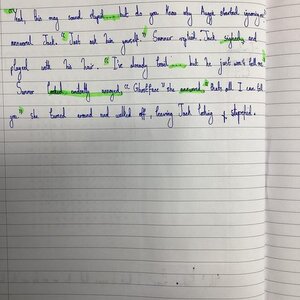 "Yeah, this may sound stupid.... but do you know why Auggie started ignoring me"
announced Jack. "Just ask him yourself." Summer replied. Jack sighed, and
played with his hair. "I've already tried.... but he just won't tell me"
Summer looked annoyed. "Ghostface" she answered "thats all I can tell
you" she turned around and walked off, leaving Jack looking stupefied.